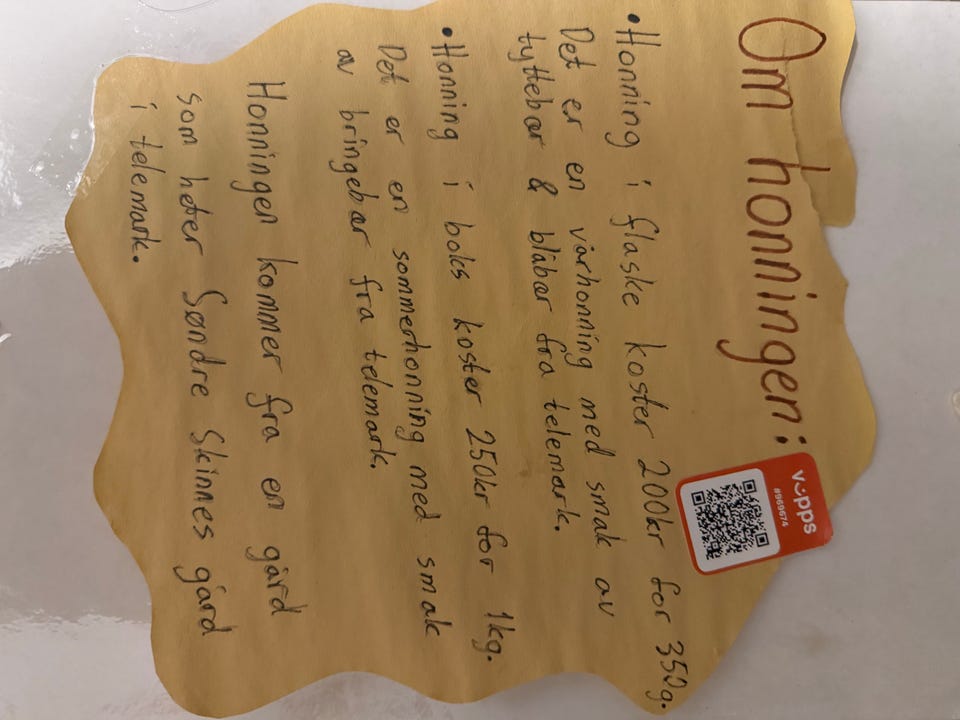 Om honningen:
vipps
#969674
•Honning i flaske koster 200kr for 350g.
Det er en vårhonning med smak av
tyttebær & blåbær fra telemark.
•Honning i boks koster 250kr for 1kg.
Det er en sommerhonning med smak
av bringebær fra telemark.
Honningen kommer fra en gård
som heter Søndre Skinnes gård
i telemark.